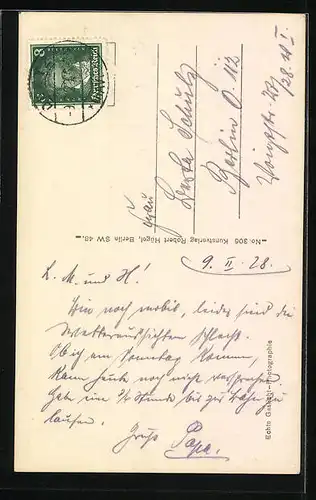 8
Deutsches Reich
Frau
Herta Schulz
Berlin O. 112
28 II I
No. 306 Kunstverlag Robert Hügel, Berlin SW 48.
9. II. 28.
L. M. und H!
Bin noch mobil, leider sind die
Wetteraussichten schlecht.
Ob ich am Sonntag komme,
kann heute noch nicht versprechen.
Habe ein 1/2 Stunde bis zur Bahn zu
laufen.
Gruß Papa.
Echte Photographie